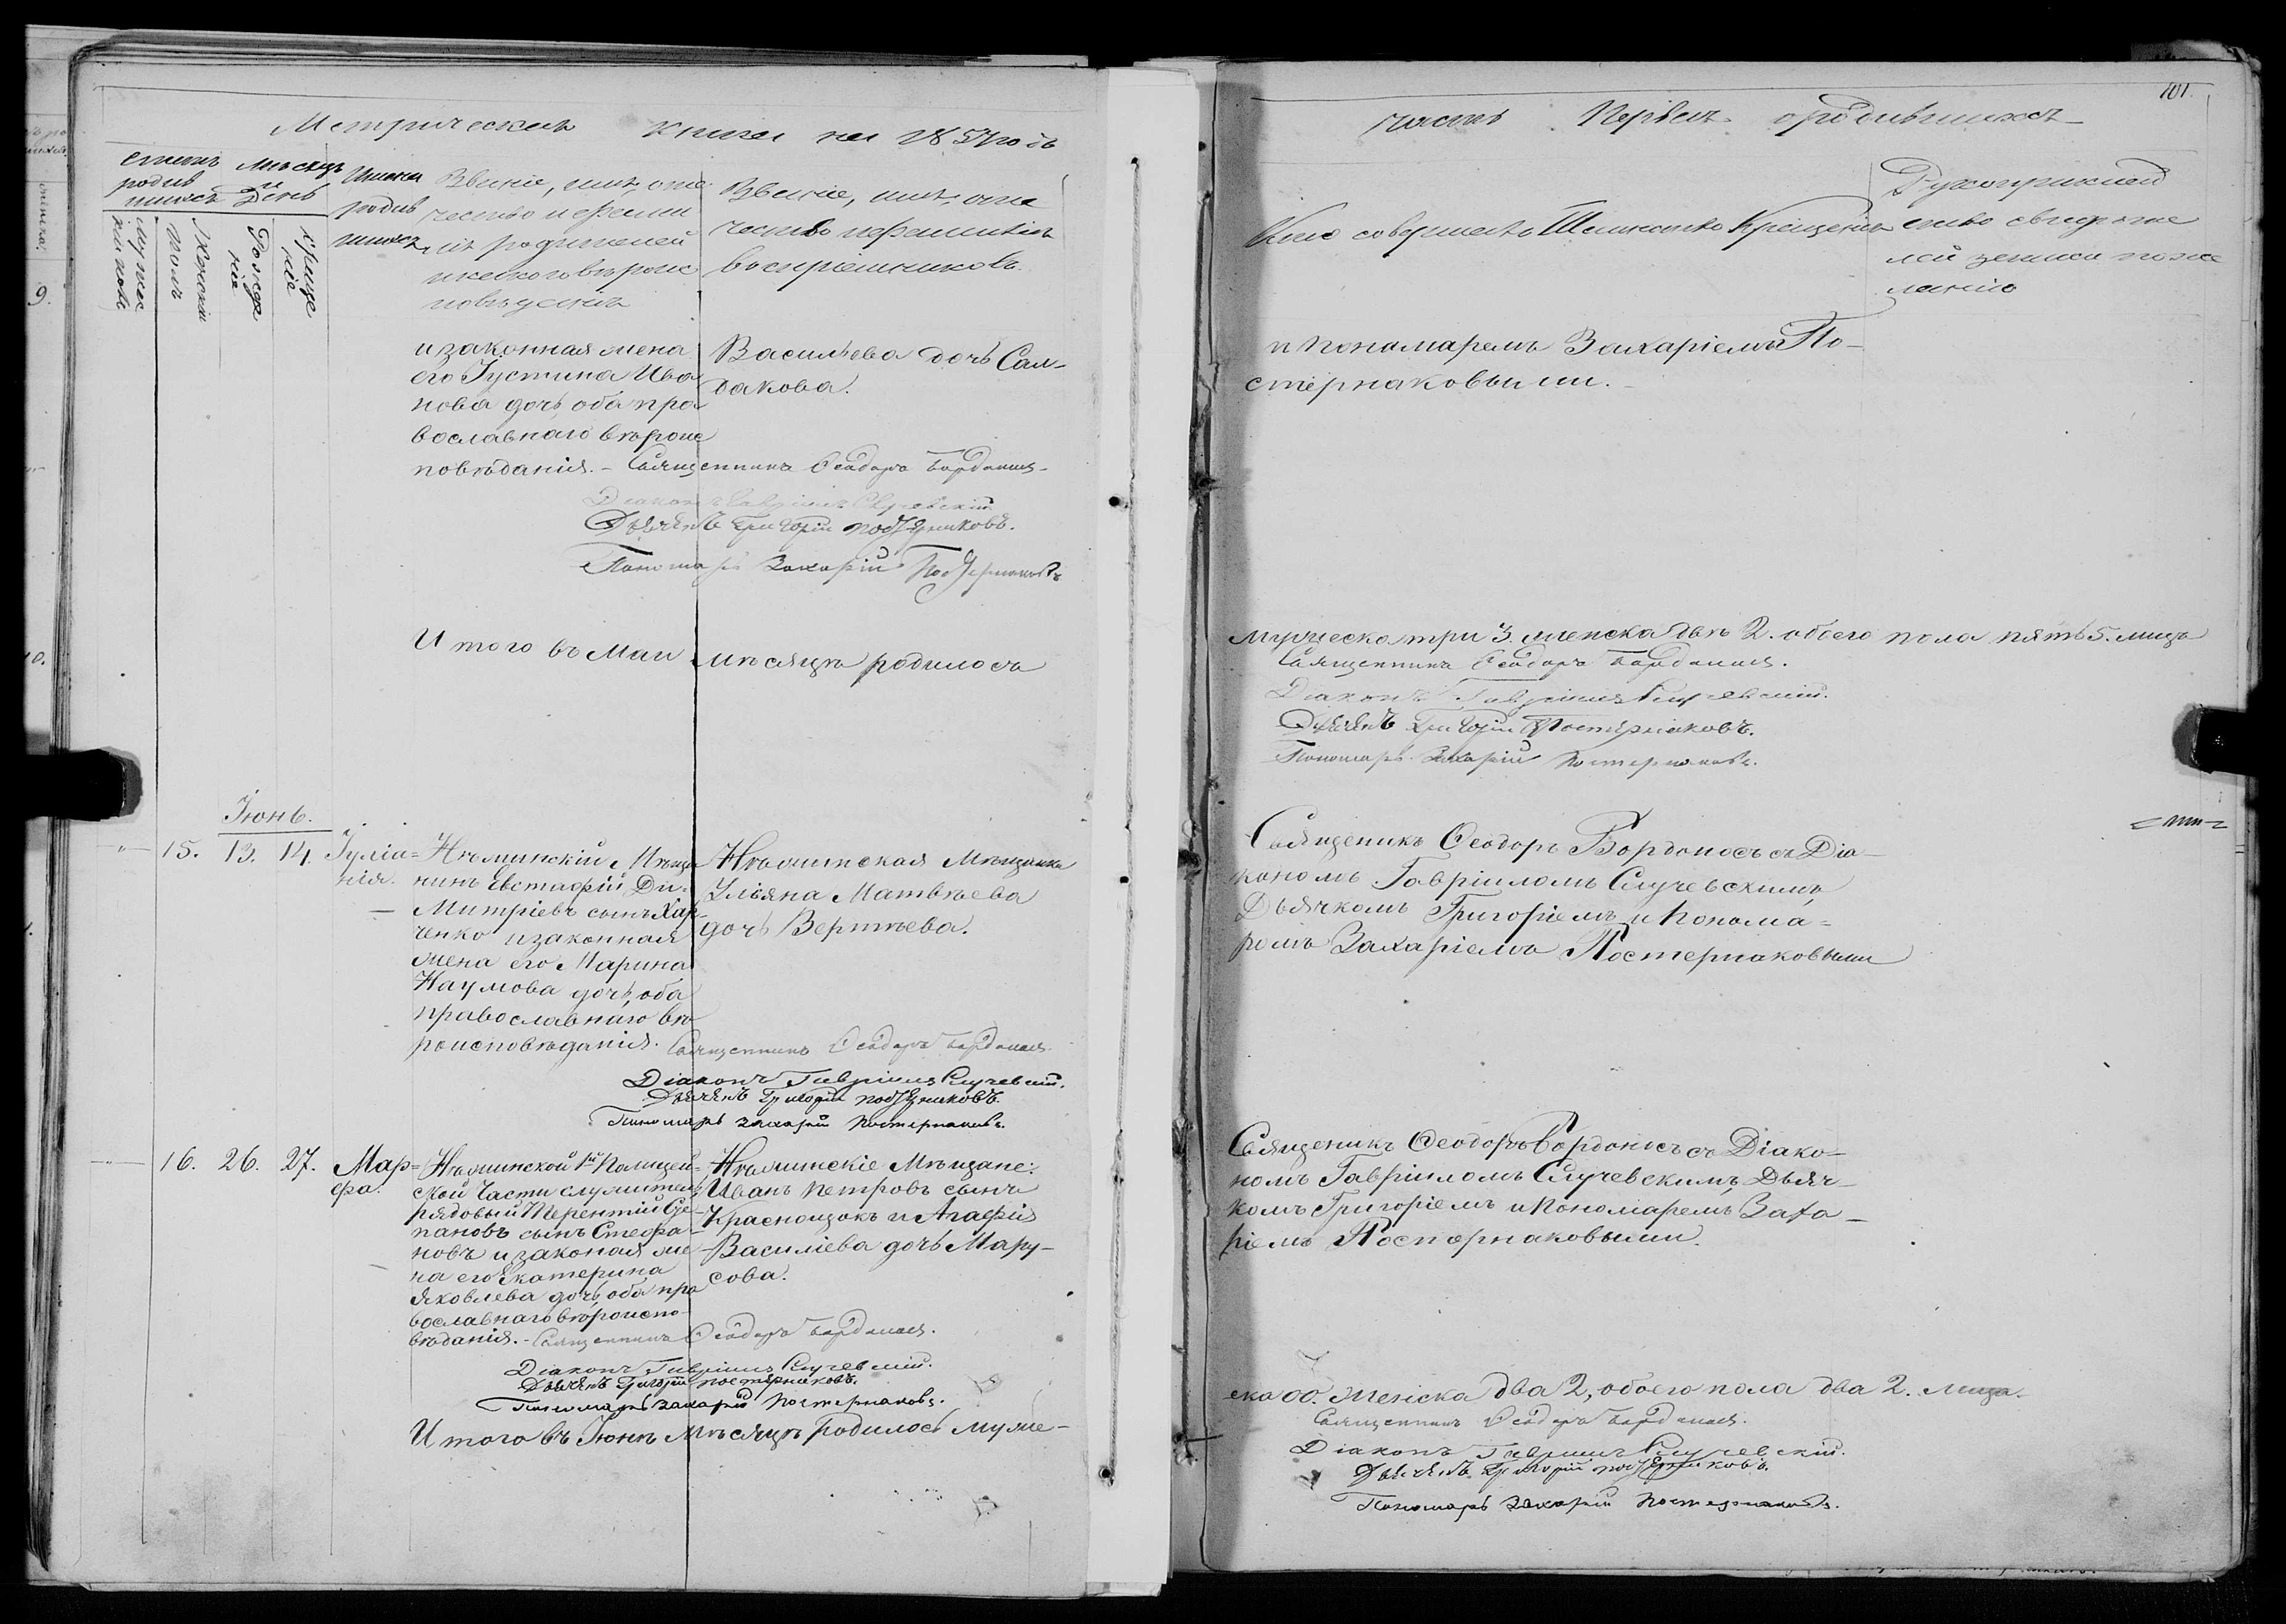 101.
Метрическая книга на 1854 годъ
часть Первая о родившихся
Счетъ родив шихся
Мѣсяцъ и День
Имена родив шихся
Званіе, имя, оте
чество и фамил
ія родителей
и какого вѣроис
повѣданія
Званіе, имя, оте
чество и фамилія
воспріемниковъ
Мужес
каго пола
Женска
пола
Рожде
нія
Креще
нія
Кто совершалъ Таинство Крещенія
Рукоприклад
ство свидѣте
лей записи по же
ланію
и законная жена
его Іустина Ива
нова дочь, оба пра
вославнаго вѣроис
повѣданія. – Священникъ Ѳеодоръ Бордоносъ
Діаконъ Гавріилъ Случевскій
Дьячекъ Григорій Постерниковъ.
Пономарь Захарій Постернаковъ
Васильева дочь Сал-
дакова.
и пономаремъ Захаріемъ По-
стернаковыми.
Итого въ Маи мѣсяцѣ родилось
мужеска три 3. женска двѣ 2. обоего пола пять 5. лицъ
Священникъ Ѳеодоръ Бордоносъ.
Діаконъ Гавріилъ Случевскій.
Дьячекъ Григорій Постернаковъ.
Пономарь Захарій Постернаковъ.
Іюнь.
15. 13. 14. Іуліа=
нія.
Нѣжинскій Мѣща
нинъ Евстафій Ди-
митріевъ сынъ Хар-
ченко и законная
жена его Марина
Наумова дочь, оба
православнаго вѣ
роисповѣданія. Священникъ Ѳеодоръ Бордоносъ
Діаконъ Гавріилъ Случевскій.
Дьячекъ Григорій Постерниковъ.
Пономарь Захарій Постернаковъ.
Нѣжинская Мѣщанка
Ульяна Матвѣева
дочь Вертѣева.
Священикъ Ѳеодоръ Бордоносъ съ Діа-
кономъ Гавріиломъ Случевскимъ,
Дьячкомъ Григоріемъ и Понома=
ромъ Захаріемъ Постернаковыми
16. 26. 27. Мар=
ѳа.
Нѣжинской 1й Полицей=
ской Части служитель
рядовый Терентій Сте-
пановъ сынъ Стефа-
новъ и законая же-
на его Екатерина
Яковлева дочь, оба пра
вославнаго вѣроиспо-
вѣданія. – Священникъ Ѳеодоръ Бордоносъ.
Діаконъ Гавріилъ Случевскій.
Дьячекъ Григорій Постернаковъ.
Пономарь Захарій Постернаковъ.
Нѣжинскіе Мѣщане:
Иванъ Петровъ сынъ
Краснощокъ и Агафія
Василіева дочь Мару-
сова.
Священикъ Ѳеодоръ Бордоносъ съ Діако-
номъ Гавріиломъ Случевскимъ, Дьяч-
комъ Григоріемъ и Пономаремъ Заха-
ріемъ Постернаковыми.
Итого въ Іюнѣ Мѣсяцѣ родилось муже-
ска 00. женска два 2, обоего пола два 2. лица.
Священникъ Ѳеодоръ Бордоносъ.
Діаконъ Гавріилъ Случевскій.
Дьячекъ Григорій Постерниковъ.
Пономарь Захарій Постернаковъ.